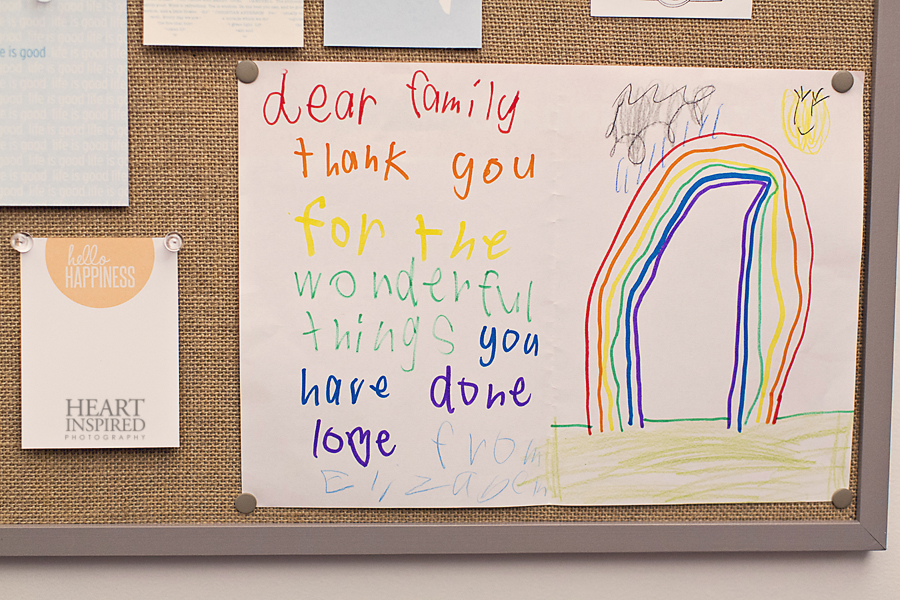 e is good
hello
HAPPINESS
HEART
INSPIRED
PHOTOGRAPHY
dear family
thank you
for the
wonderful
things you
have done
love from
Elizabeth